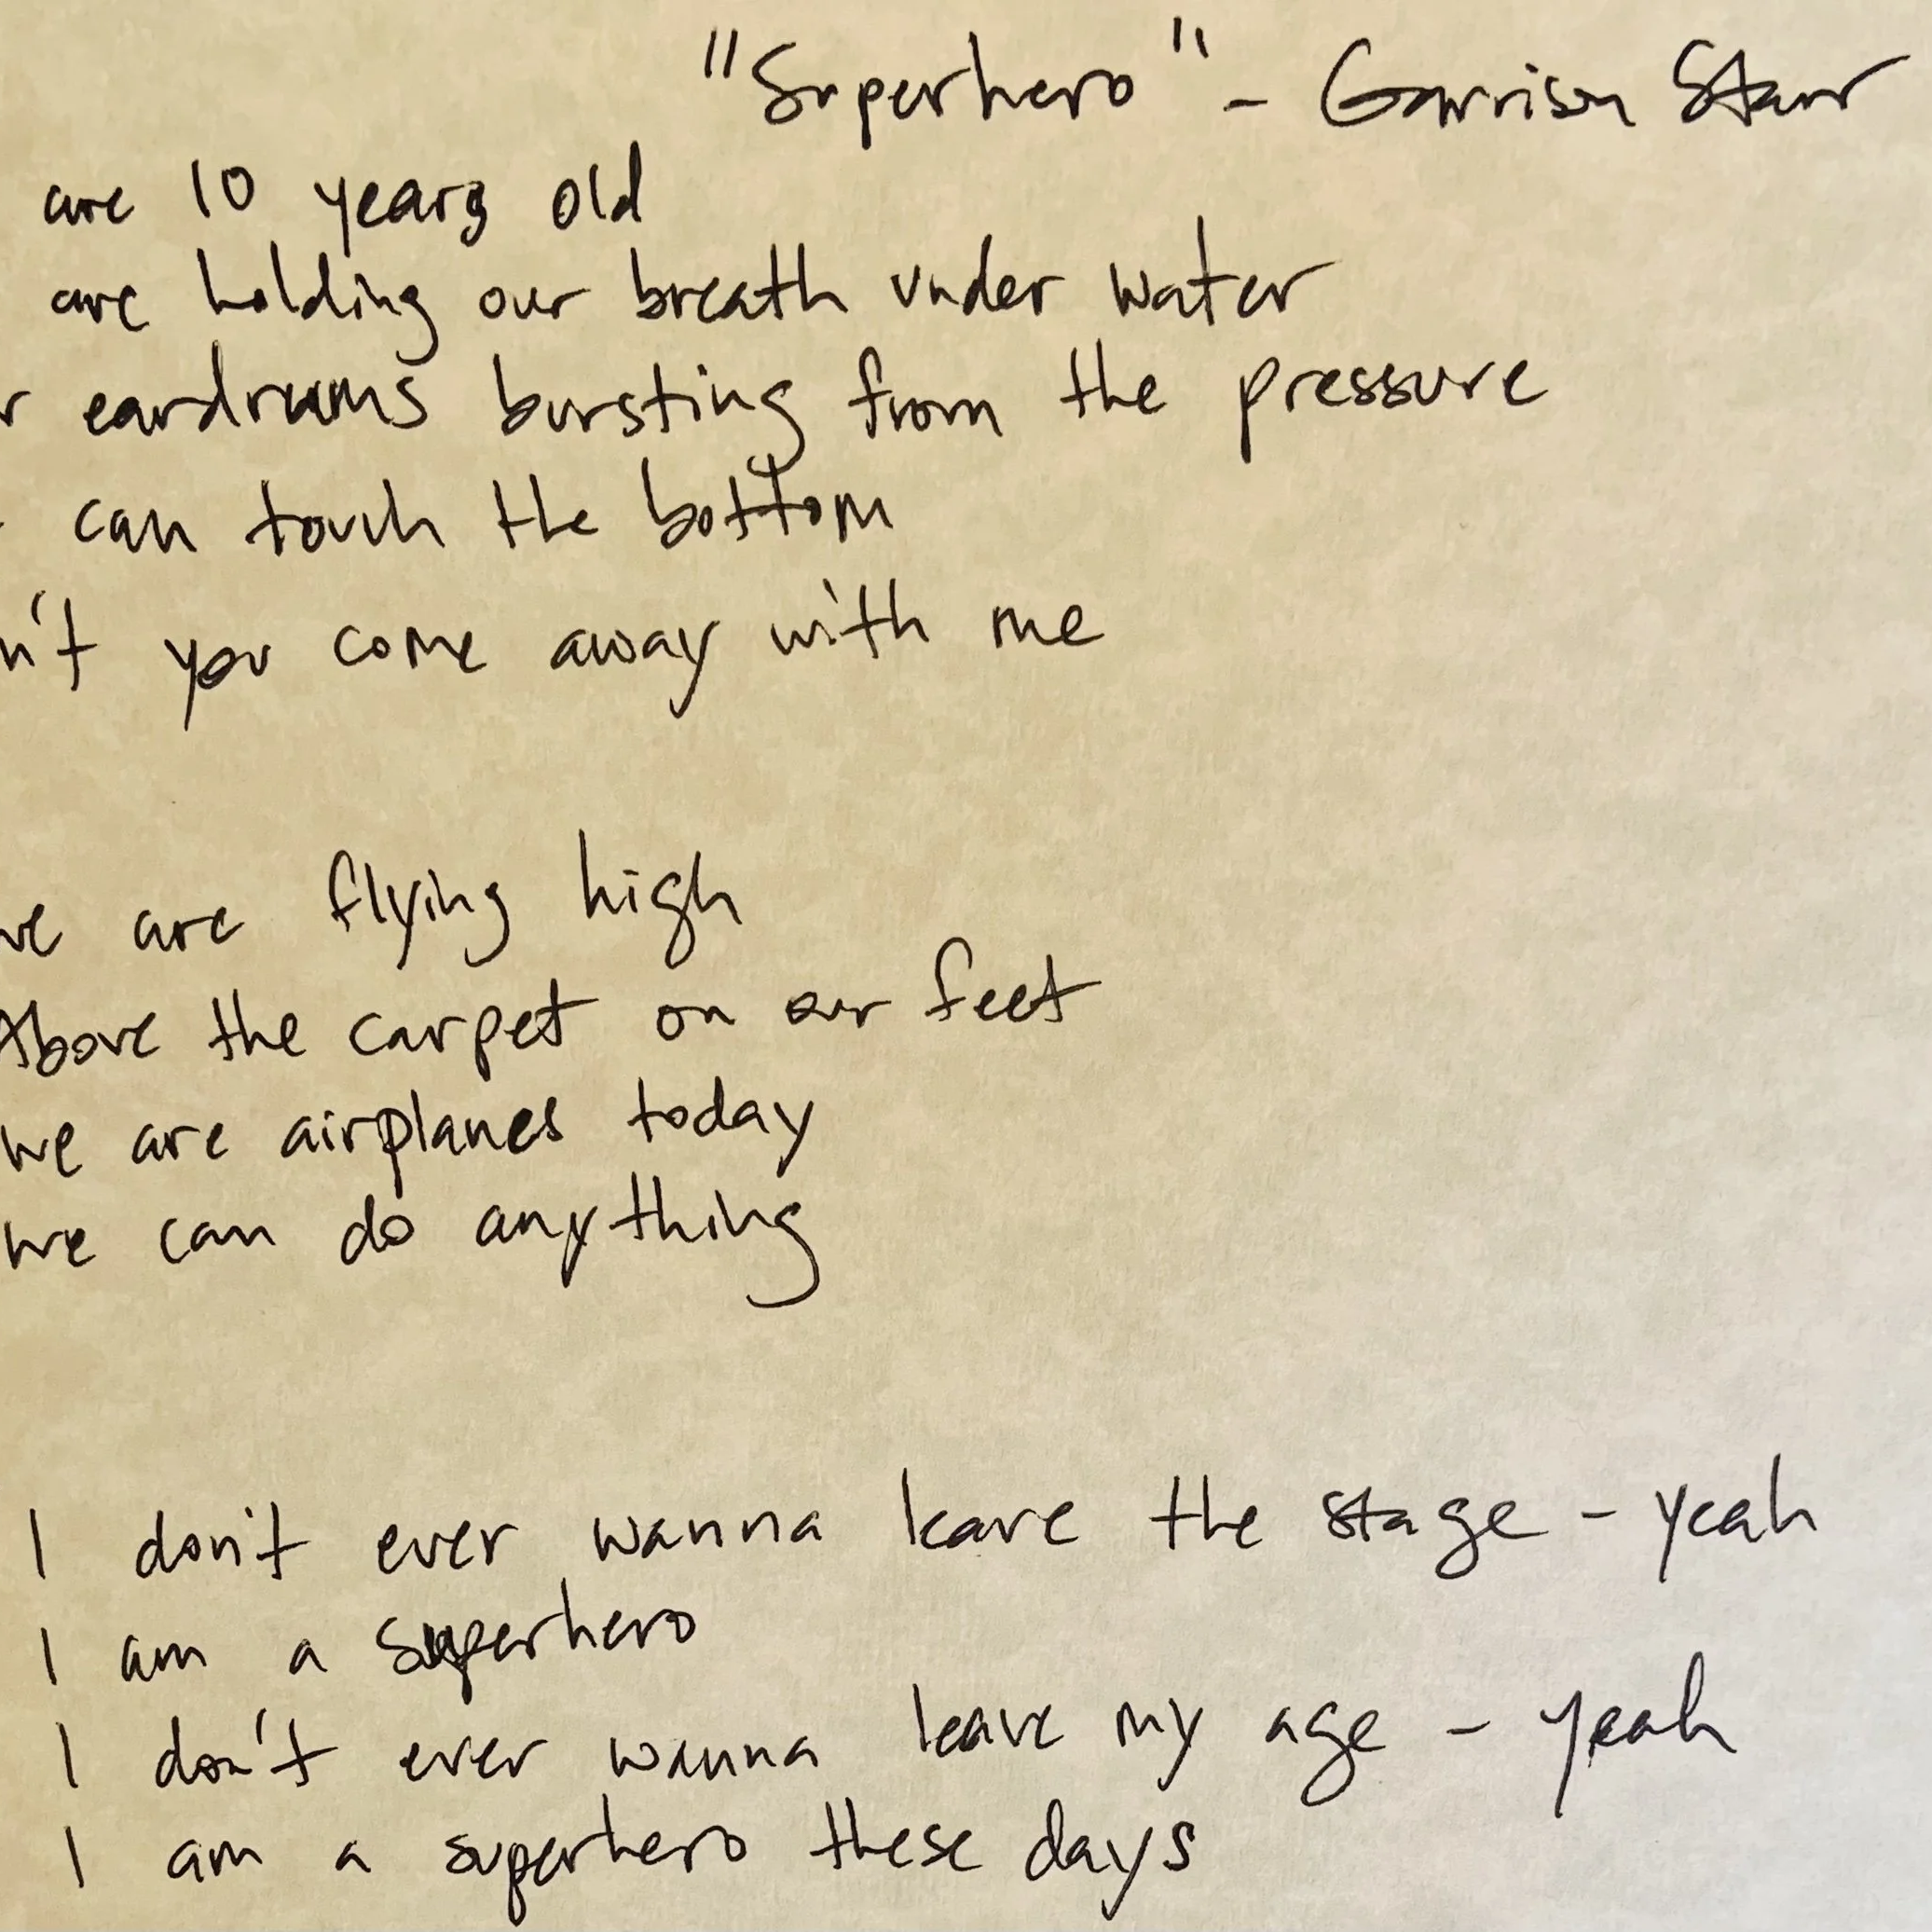 "Superhero" - Garrison Starr
are 10 years old
are holding our breath under water
r eardrums bursting from the pressure
can touch the bottom
n't you come away with me
we are flying high
Above the carpet on our feet
we are airplanes today
we can do anything
I don't ever wanna leave the stage - yeah
I am a superhero
I don't ever wanna leave my age - yeah
I am a superhero these days